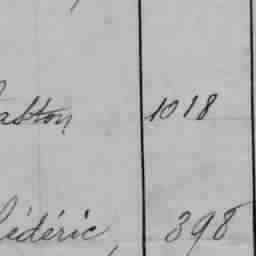 Gaston 1018
Frédéric, 398